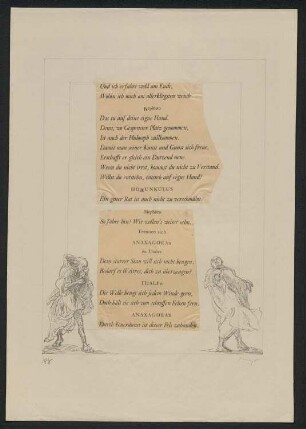 Und ich erfahre wohl am Ende,
Wohin ich mich am allerklügsten wende.
Das tu auf deine eigne Hand.
Denn, wo Gespenster Platz genommen,
Ist auch der Philosoph willkommen.
Damit man seiner Kunst und Gunst sich freue,
Erschafft er gleich ein Dutzend neue.
Wenn du nicht irrst, kommst du nicht zu Verstand.
Willst du entstehn, entsteh auf eigne Hand!
HOMUNKULUS
Ein guter Rat ist auch nicht zu verschmähn.
So fahre hin! Wir wollen's weiter sehn.
Trennen sich
ANAXAGORAS
Dein starrer Sinn will sich nicht beugen;
Bedarf es Weitres, dich zu überzeugen?
THALES
Die Welle beugt sich jedem Winde gern,
Doch hält sie sich vom schroffen Felsen fern.
ANAXAGORAS
Durch Feuerdunst ist dieser Fels zuhanden.